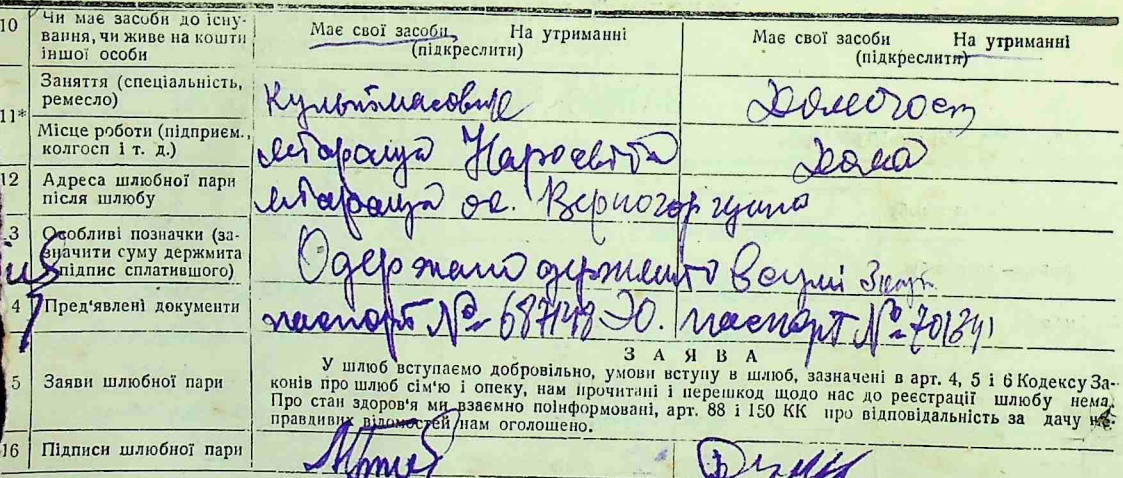 10 Чи має засоби до існу-
вання, чи живе на кошти
іншої особи
Має свої засоби На утриманні
(підкреслити)
Має свої засоби На утриманні
(підкреслити)
11* Заняття (спеціальність,
ремесло)
Культмасовик
Домогосп
Місце роботи (підприєм.,
колгосп і т. д.)
Наросвіта
дома
12 Адреса шлюбної пари
після шлюбу
3 Особливі позначки (за-
значити суму держмита
підпис сплатившого)
Одержано держмито в сумі
4 Пред'явлені документи
паспорт № 687148 паспорт № 701341
З А Я В А
5 Заяви шлюбної пари
У шлюб вступаємо добровільно, умови вступу в шлюб, зазначені в арт. 4, 5 і 6 Кодексу За-
конів про шлюб сім'ю і опеку, нам прочитані і перешкод щодо нас до реєстрації шлюбу нема.
Про стан здоров'я ми взаємно поінформовані, арт. 88 і 150 КК про відповідальність за дачу не-
правдивих відомостей нам оголошено.
16 Підписи шлюбної пари